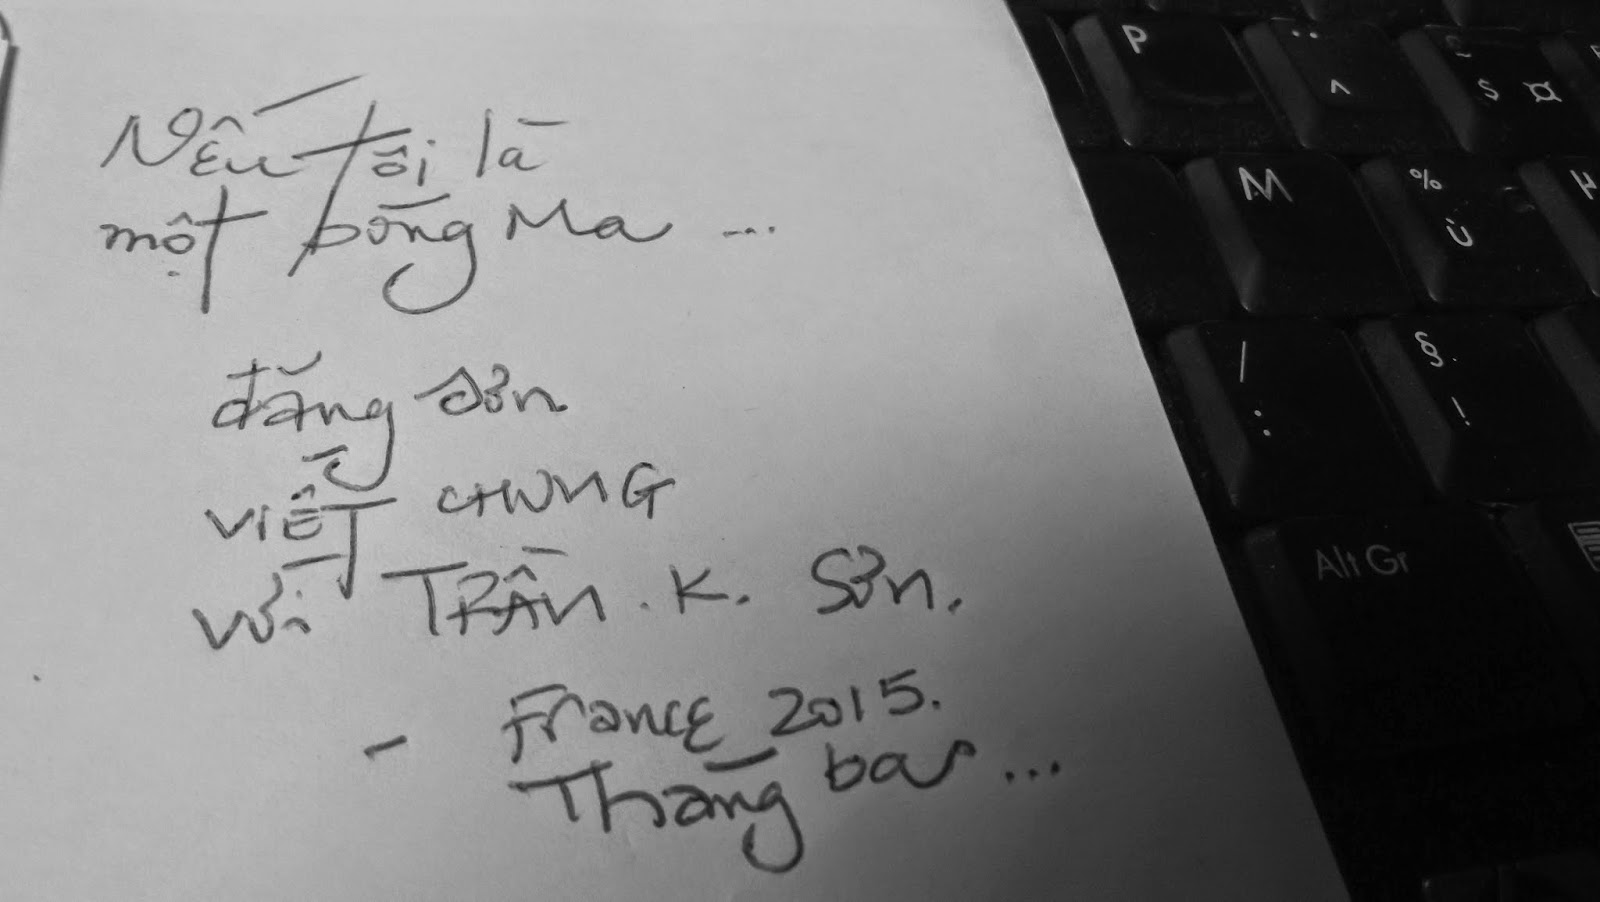 Nếu tôi là
một bóng Ma ...
đặng sơn
VIẾT CHUNG
với TRẦN . K. Sơn.
- France 2015.
Tháng ba ...
P
¨
^
$ ¤
M
%
ù
µ
/
:
§
!
Alt Gr